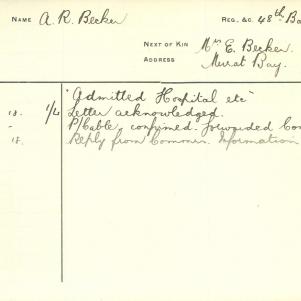 NAME A. R. Becker REG. &C. 48th Ba
NEXT OF KIN Mrs E. Becker.
ADDRESS Murat Bay.
"Admitted Hospital etc"
18. 1/4 Letter acknowledged.
- P/Cable, confirmed. forwarded Co
18. Reply from Commn. Information